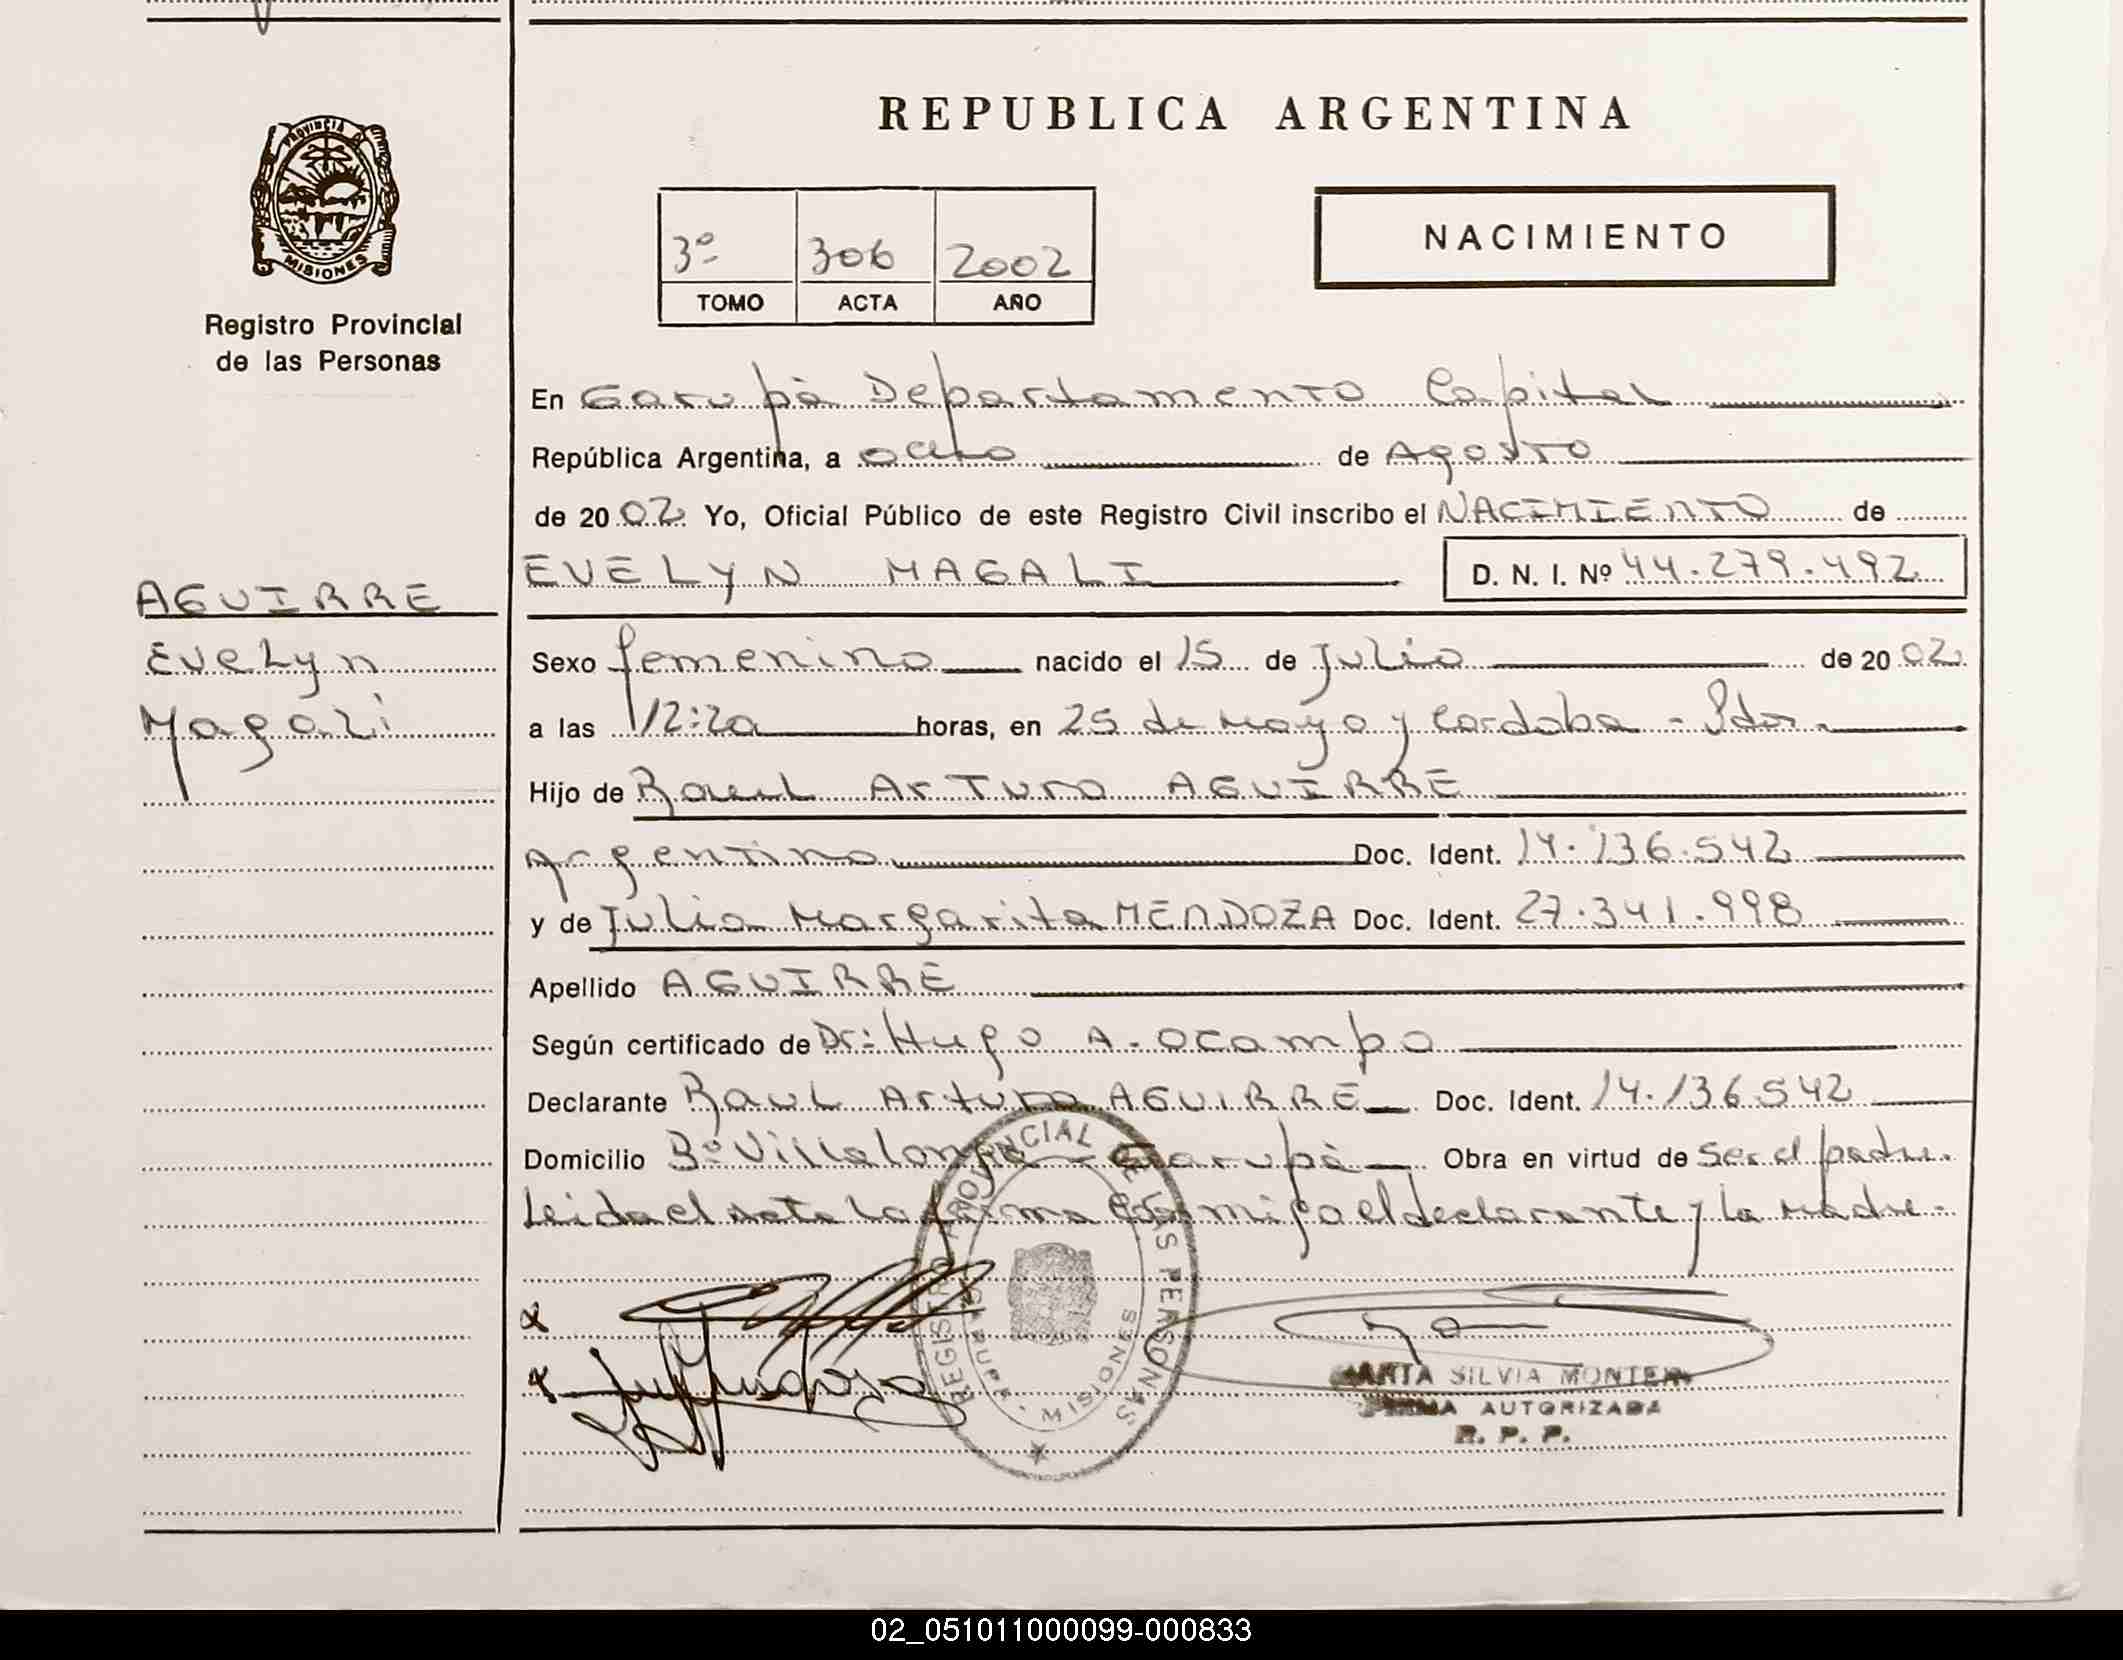 PROVINCIA DE
MISIONES
Registro Provincial
de las Personas
AGUIRRE
Evelyn
Magali
REPUBLICA ARGENTINA
3º 306 2002
TOMO ACTA AÑO
NACIMIENTO
En Garupá Departamento Capital
República Argentina, a ocho de Agosto
de 2002 Yo, Oficial Público de este Registro Civil inscribo el NACIMIENTO de
EVELYN MAGALI D. N. I. Nº 44.279.492
Sexo femenino nacido el 15 de Julio de 2002
a las 12:20 horas, en 25 de Mayo y Cordoba - Pdas.
Hijo de Raul Arturo AGUIRRE
Argentino Doc. Ident. 14.136.542
y de Julia Margarita MENDOZA Doc. Ident. 27.341.998
Apellido AGUIRRE
Según certificado de Dr: Hugo A. Ocampo
Declarante Raul Arturo AGUIRRE Doc. Ident. 14.136.542
Domicilio Bº Villalonga - Garupá Obra en virtud de ser el padre.
Leida el acta la firma conmigo el declarante y la madre.
REGISTRO PROVINCIAL DE LAS PERSONAS
MISIONES
MARTA SILVIA
FIRMA AUTORIZADA
R. P. P.
02_051011000099-000833